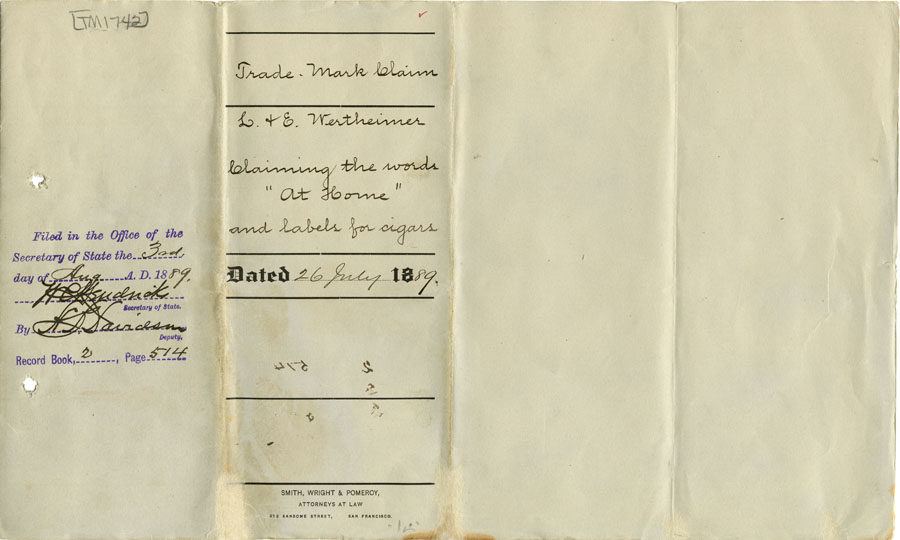 [TM1742]
Trade-Mark Claim
L. & E. Wertheimer
Claiming the words
"At Home"
and labels for cigars
Dated 26 July 1889.
Filed in the Office of the
Secretary of State the 3rd
day of Aug A. D. 1889.
W C Hendricks
Secretary of State.
By Davidson
Deputy,
Record Book, 2, Page 514
514 2
SMITH, WRIGHT & POMEROY,
ATTORNEYS AT LAW
SANSOME STREET, SAN FRANCISCO.